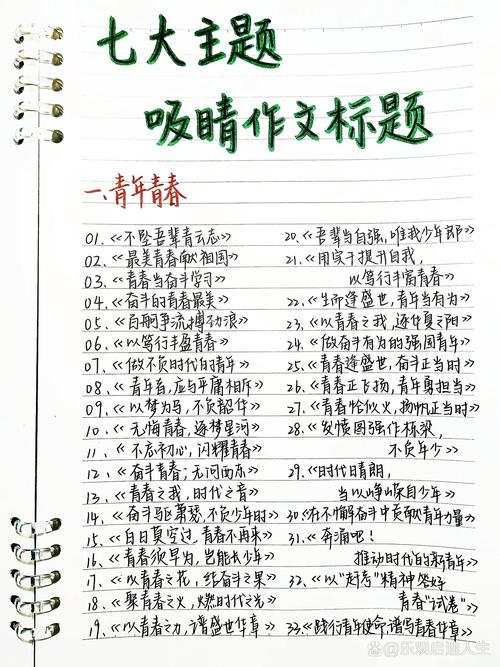 七大主题
吸睛作文标题
一、青年青春
01.《不坠吾辈青云志》
02.《最美青春献祖国》
03.《青春当奋斗学习》
04.《奋斗的青春最美》
05.《百舸争流搏劲浪》
06.《以笃行丰盈青春》
07.《做不负时代的青年》
08.《青年者,应与平庸相斥》
09.《以梦为马,不负韶华》
10.《无悔青春,逐梦星河》
11.《不忘初心,闪耀青春》
12.《奋斗青春;无问西东》
13.《青春之我,时代之音》
14.《奋斗驱萧瑟,不负少年时》
15.《白日莫空过,青春不再来》
16.《青春须早为,岂能长少年》
17.《以青春之花,结奋斗之果》
18.《聚青春之火,燃时代之光》
19.《以青春之力,谱盛世华章》
20.《吾辈当自强,唯我少年郎》
21.《用实干提升自我,
以笃行丰富青春》
22.《生所逢盛世,青年当有为》
23.《以青春之我,逐华夏之阳》
24.《做奋斗有为的强国青年》
25.《青春逢盛世,奋斗正当时》
26.《青春正飞扬,青年勇担当》
27.《青春恰似火,扬帆正当时》
28.《发愤图强作栋梁,
不负年少》
29.《时代日晴朗,
当以峥嵘自少年》
30.《在不懈奋斗中贡献青年力量》
31.《奔涌吧!
推动时代的新青年》
32.《以“赶考”精神答好
青春“试卷”》
33.《践行青年使命,谱写青春华章》
@乐观启迪人生